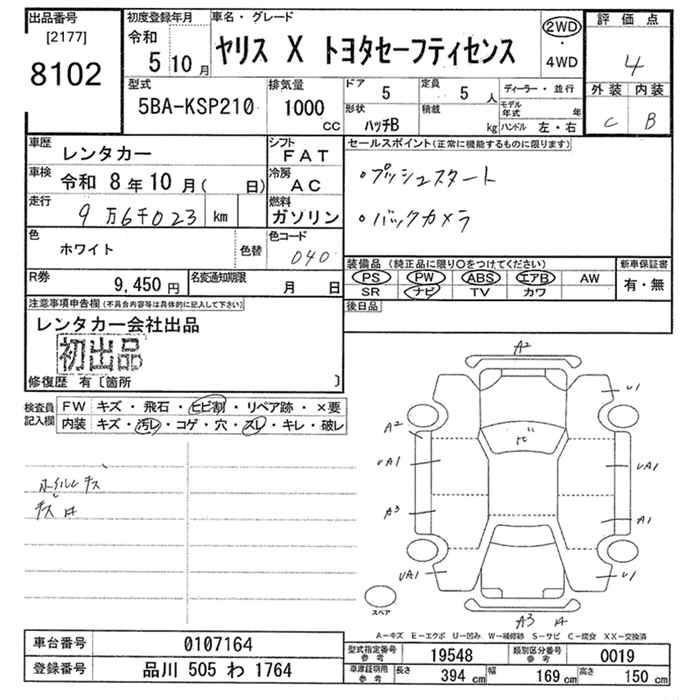 出品番号
[2177]
8102
初度登録年月
令和 5年 10月
車名・グレード
ヤリス X トヨタセーフティセンス
2WD
・
4WD
評価点
4
外装 内装
C B
型式
5BA-KSP210
排気量
1000 CC
ドア 5
定員 5 人
形状 ハッチB
積載 kg
ディーラー・並行
モデル年式 年
ハンドル 左・右
車歴 レンタカー
シフト FAT
車検 令和 8年 10月 ( 日)
冷房 AC
走行 9万6千023 km
燃料 ガソリン
色 ホワイト
色替
色コード 040
R券 9,450 円
名変通知期限 月 日
セールスポイント(正常に機能するものに限ります)
・プッシュスタート
・バックカメラ
装備品 (純正品に限り○をつけてください)
PS PW ABS エアB AW
SR ナビ TV カワ
新車保証書
有・無
後日品
注意事項申告欄(不具合内容等は具体的に記入して下さい)
レンタカー会社出品
初出品
修復歴 有〔箇所 〕
検査員記入欄
FW キズ・飛石・ヒビ割・リペア跡・×要
内装 キズ・汚レ・コゲ・穴・スレ・キレ・破レ
ホイルキズ
A2
U1
A2
UA1
UA1
A3
A1
UA1
U1
A3
スペア
A-キズ E-エクボ U-凹み W-補修跡 S-サビ C-腐食 XX-交換済
車台番号 0107164
登録番号 品川 505 わ 1764
型式指定番号 参考 19548
類別区分番号 参考 0019
車庫証明用 参考 長さ 394 cm 幅 169 cm 高さ 150 cm